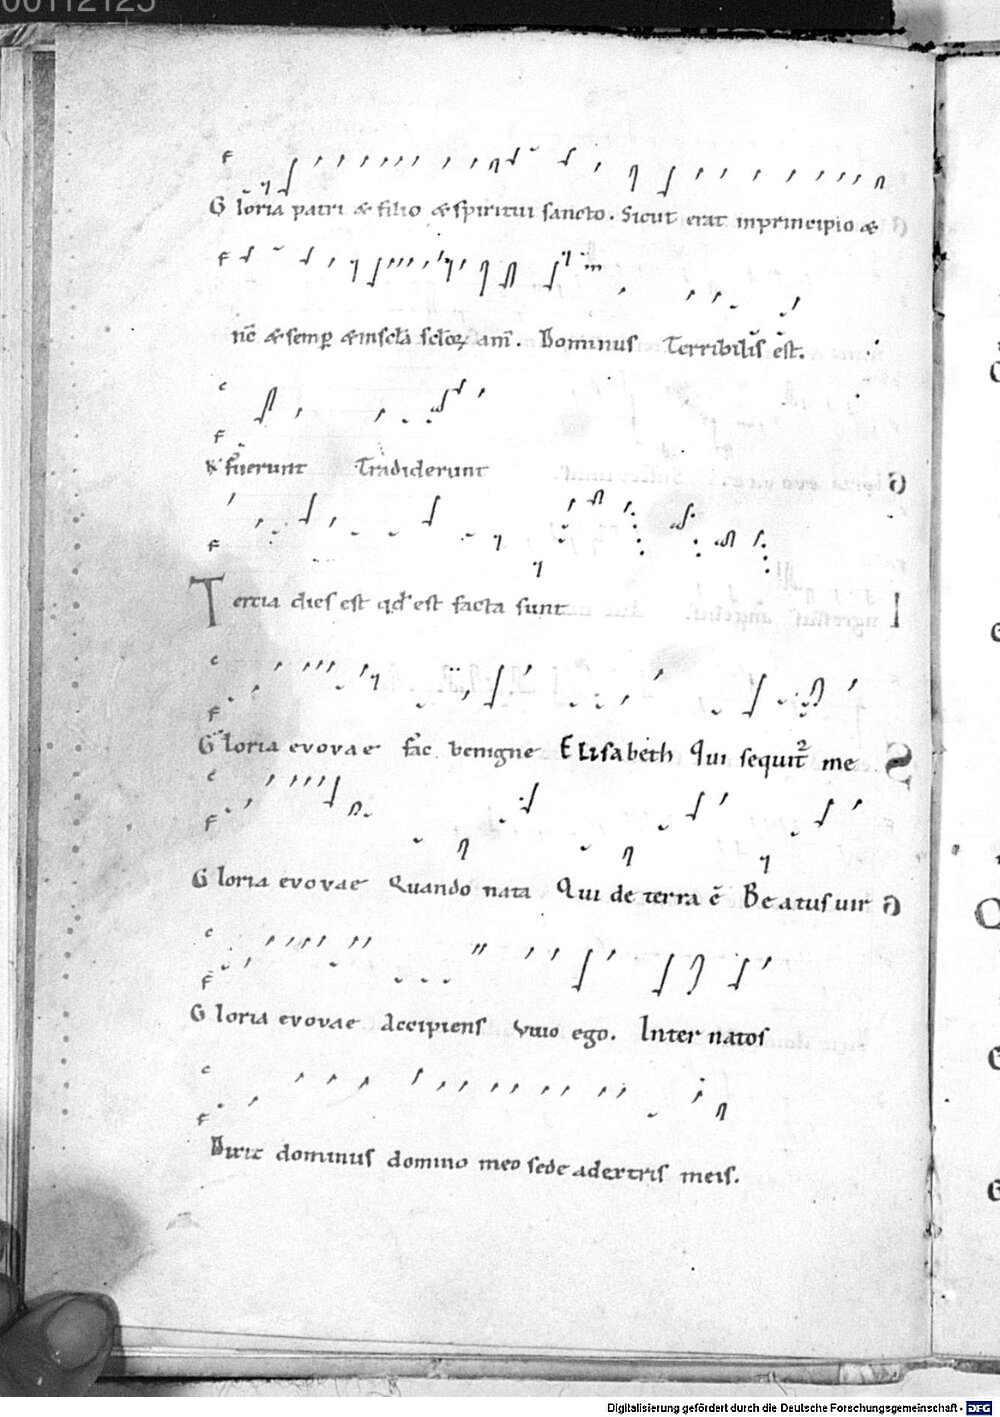 00112125
F
G loria patri & filio & spiritui sancto. Sicut erat inprincipio &
F
nc̄ & semp̄ & inscl̄a scl̄oꝝ am̄. Dominus Terribilis est.
c
F
fuerunt Tradiderunt
F
Tertia dies est qd' est facta sunt
c
F
G loria evovae fac benigne Elisabeth Qui sequit² me
c
F
G loria evovae Quando nata Qui de terra ē Beatus uir
c
F
G loria evovae Accipiens Vnio ego. Inter natos
c
F
Dixit dominus domino meo sede adextris meis.
Digitalisierung gefördert durch die Deutsche Forschungsgemeinschaft - DFG